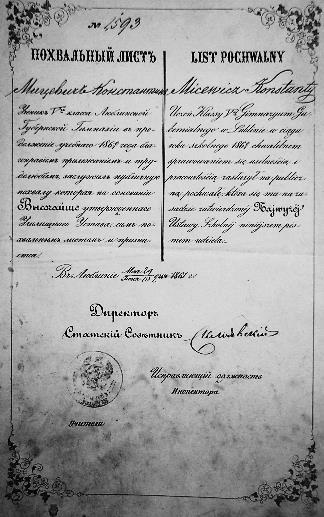 № 1593
ПОХВАЛЬНЫЙ ЛИСТЪ
Мицевичъ Константинъ
Ученикъ Vго класса Люблинской
Губернской Гимназіи въ про-
долженіе учебнаго 1868 года благо-
нравіемъ прилежаніемъ и тру-
долюбіемъ заслужилъ публичную
похвалу которая на основаніи
Высочайше утвержденнаго
Училищнаго Устава симъ по-
хвальнымъ листомъ и
LIST POCHWALNY
Micewicz Konstanty
Uczeń Klassy Vej Gimnazyum Gu-
bernialnego w Lublinie w ciągu
roku szkolnego 1868 chwalebnem
sprawowaniem się pilnością i
pracowitością zasłużył na publicz-
ną pochwałę, która się mu na za-
sadzie zatwierdzonej Najwyżéj
Ustawy Szkolnej niniejszem pis-
mem udziela.
Въ Люблинѣ дня 1868 г.
Директоръ
Статскій Совѣтникъ
Исправляющій должность
Инспектора
Учители